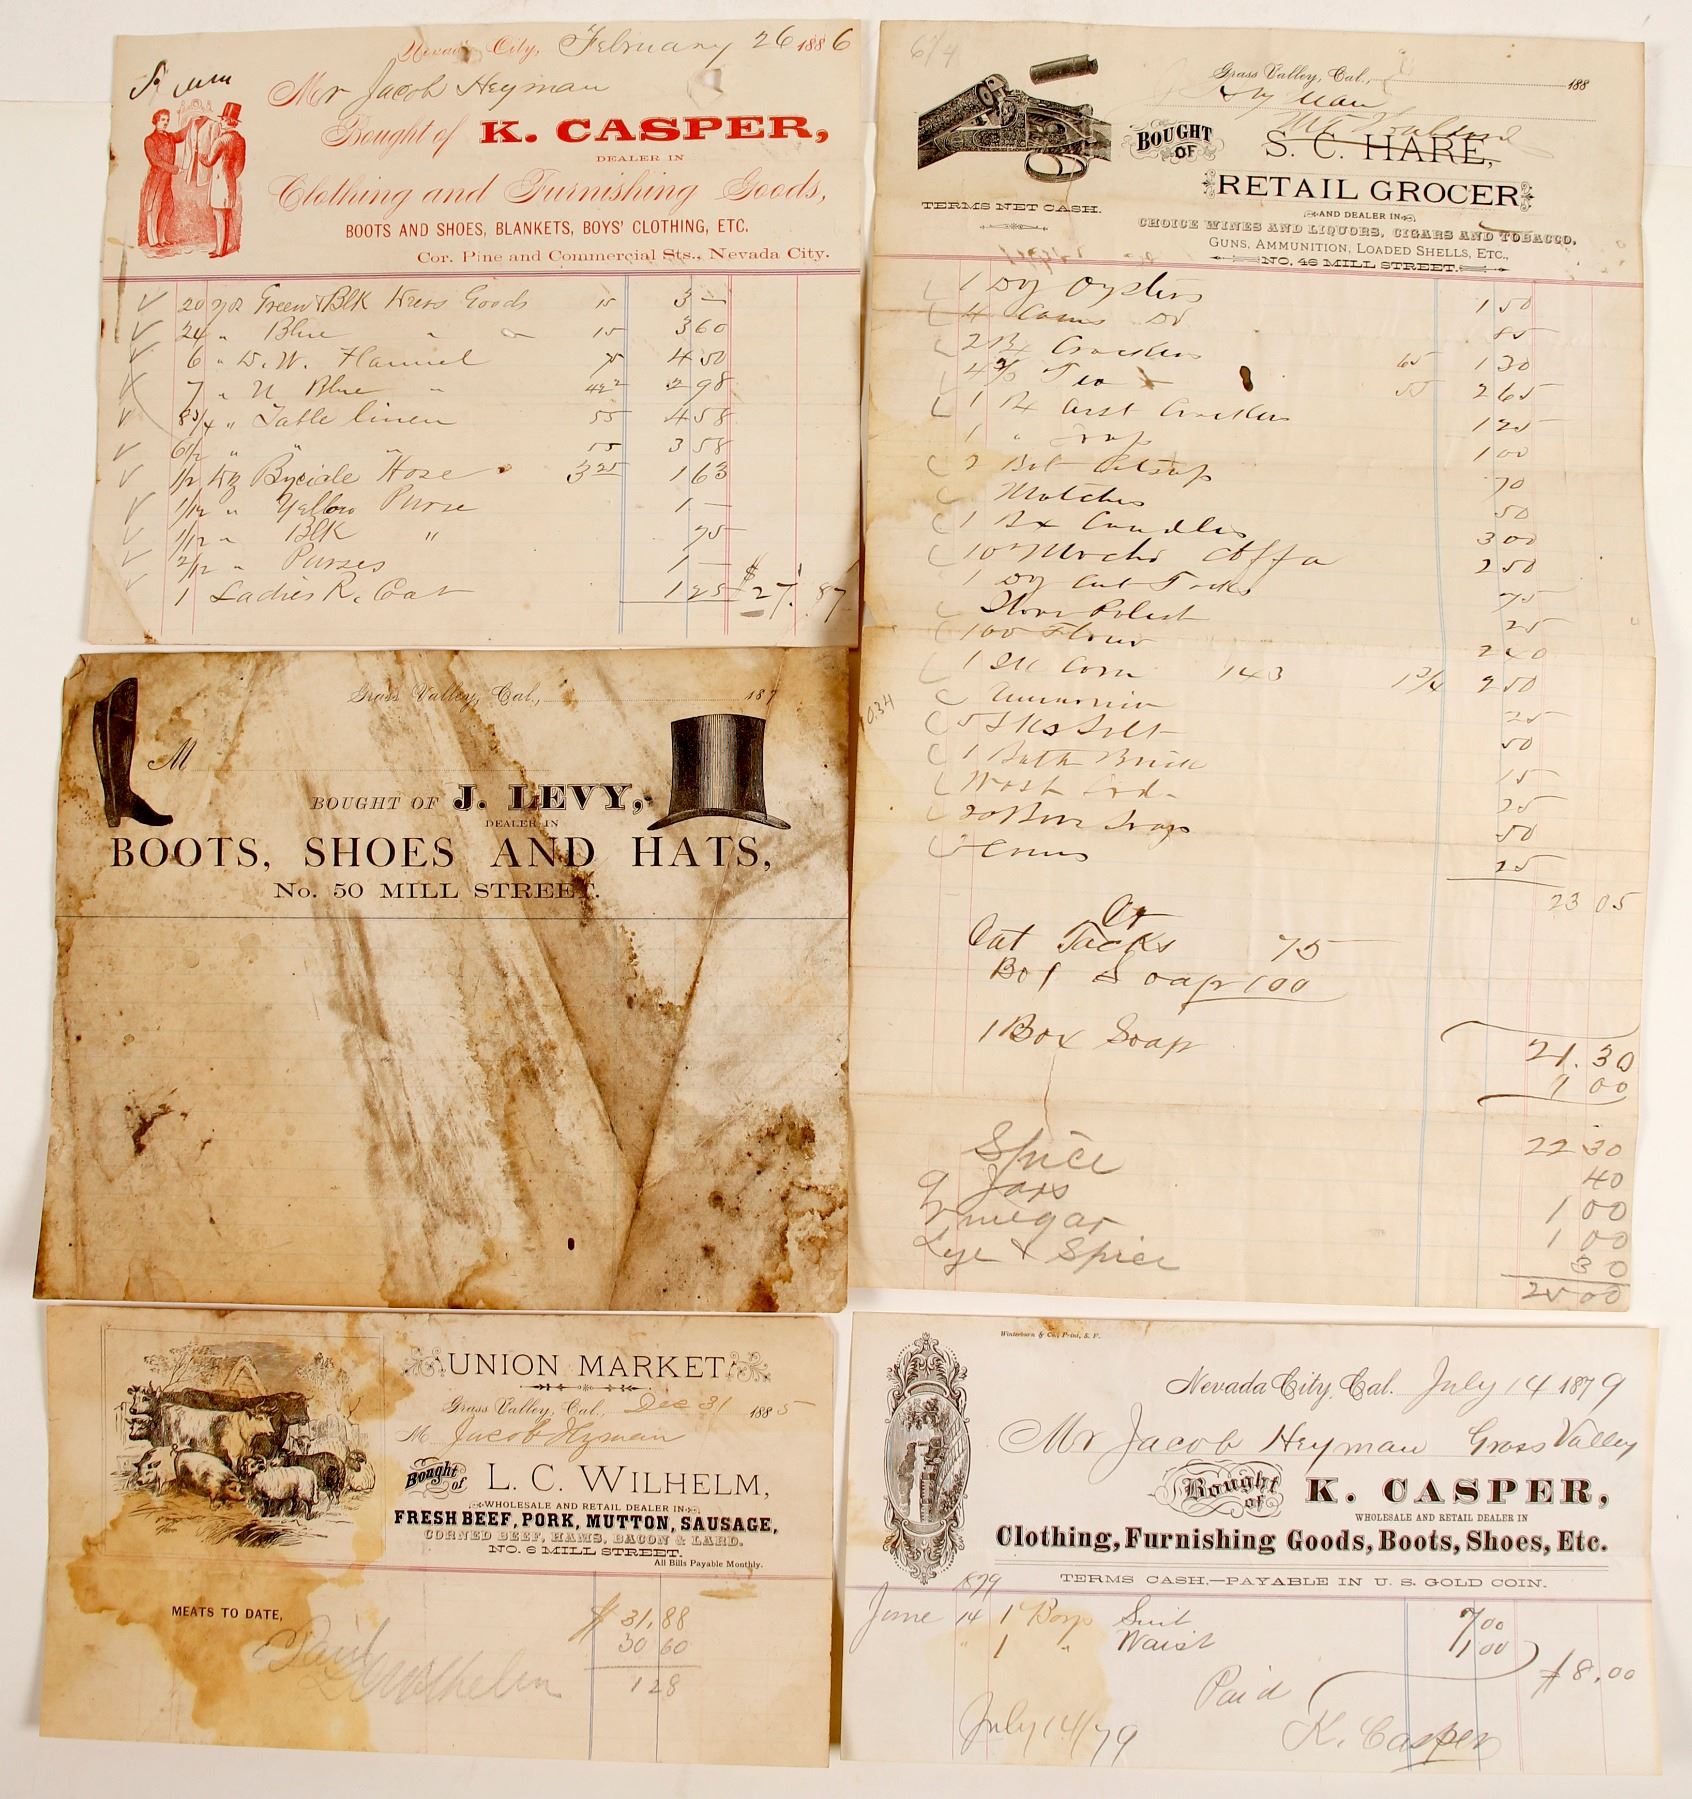 Nevada City, February 26 1886
Mr Jacob Heyman
Bought of K. CASPER,
DEALER IN
Clothing and Furnishing Goods,
BOOTS AND SHOES, BLANKETS, BOYS' CLOTHING, ETC.
Cor. Pine and Commercial Sts., Nevada City.
20 yds Green & Blk Dress Goods 15 3 —
24 " Blue " " 15 3 60
6 " D. W. Flannel 75 4 50
7 " N Blue " 42 2 2 98
8 3/4 " Table linen 55 4 58
6 1/2 " " 55 3 58
1/2 Dz Bycicle Hose 3 25 1 63
1/12 " Yellow Purse 1 —
1/12 " Blk " 75
2/12 " Purses 1 —
1 Ladies R. Coat 1 25 $27.87
6/4
Grass Valley, Cal., 188
Hyman
BOUGHT OF S. C. HARE,
RETAIL GROCER
AND DEALER IN
CHOICE WINES AND LIQUORS, CIGARS AND TOBACCO,
GUNS, AMMUNITION, LOADED SHELLS, ETC.,
NO. 46 MILL STREET.
TERMS NET CASH.
1 Dz Oysters 1 50
4 Cans Do 85
2 Bx Crackers 65 1 30
4 Tea 55 2 65
1 Bx Asst Crackers 1 25
1 " Soap 1 00
2 Bot Catsup 70
Matches 50
1 Bx Candles 3 00
10 Mocha Coffa 2 50
1 Dz Cut Tacks 75
Stove Polish 25
100 Flour 2 40
1 Sk Corn 143 1 3/4 2 50
Ammonia 25
5 Sks Salt 50
1 Bath Brick 15
Wash 25
Soap 50
25
23 05
Cr
Cut Tacks 75
Box Soap 1 00
1 Box Soap
21.30
1 00
22 30
Spice 40
Jars 1 00
Vinegar 1 00
Lye & Spice 30
25 00
Grass Valley, Cal., 187
M
BOUGHT OF J. LEVY,
DEALER IN
BOOTS, SHOES AND HATS,
No. 50 MILL STREET.
UNION MARKET
Grass Valley, Cal., Dec 31 1885
M Jacob Hyman
Bought of L. C. WILHELM,
WHOLESALE AND RETAIL DEALER IN
FRESH BEEF, PORK, MUTTON, SAUSAGE,
CORNED BEEF, HAMS, BACON & LARD.
NO. 6 MILL STREET.
All Bills Payable Monthly.
MEATS TO DATE, $ 31.88
30 60
1 28
Paid
L C Wilhelm
Winterburn & Co., Print, S. F.
Nevada City, Cal. July 14 1879
Mr Jacob Heyman Grass Valley
Bought of K. CASPER,
WHOLESALE AND RETAIL DEALER IN
Clothing, Furnishing Goods, Boots, Shoes, Etc.
TERMS CASH,—PAYABLE IN U. S. GOLD COIN.
1879
June 14 1 Boys Suit 7 00
" 1 " Waist 1 00
$8.00
Paid
July 14/79 K. Casper